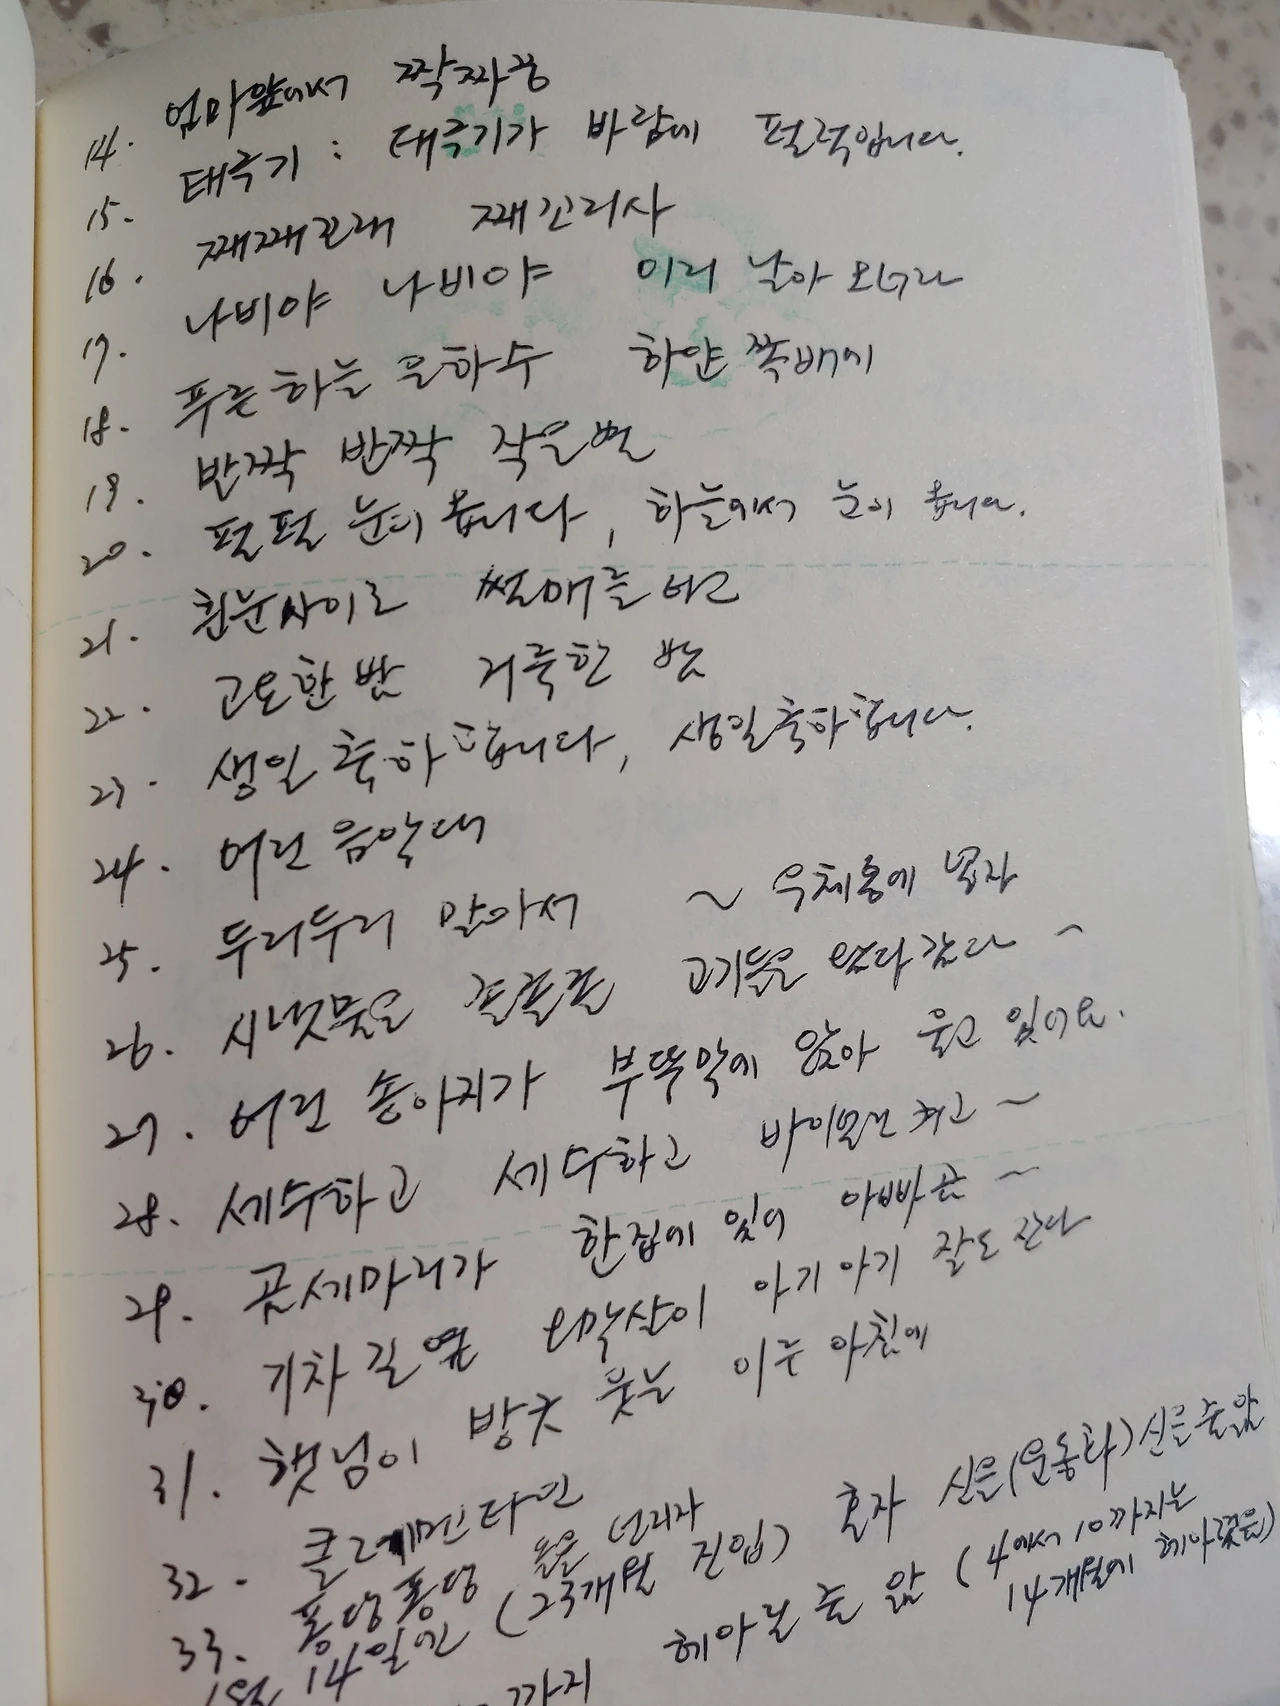 14. 엄마앞에서 짝짜꿍
15. 태극기 : 태극기가 바람에 펄럭입니다.
16. 째째꼬래 째꼬리사
17. 나비야 나비야 이리 날아 오너라
18. 푸른하늘 은하수 하얀 쪽배에
19. 반짝 반짝 작은별
20. 펄펄 눈이 옵니다, 하늘에서 눈이 옵니다.
21. 흰눈사이로 썰매를 타고
22. 고요한 밤 거룩한 밤
23. 생일 축하합니다, 생일축하합니다.
24. 어린 음악대
25. 두리두리 말아서 ~ 우체통에 넣자
26. 시냇물은 졸졸졸 고기들은 왔다갔다 ~
27. 어린 송아지가 부뚜막에 앉아 울고 있어요.
28. 세수하고 세수하고 바이올린 켜고 ~
29. 곰세마리가 한집에 있어 아빠곰 ~
30. 기차길 옆 오막살이 아기 아기 잘도 잔다
31. 햇님이 방긋 웃는 이른 아침에
32. 클레멘타인
33. 퐁당퐁당 돌을 던지자
1월 14일에 (23개월 진입) 혼자 신을(운동화)신을줄앎
까지 헤아릴 줄 앎 (4에서 10까지는
14개월에 헤아렸음)